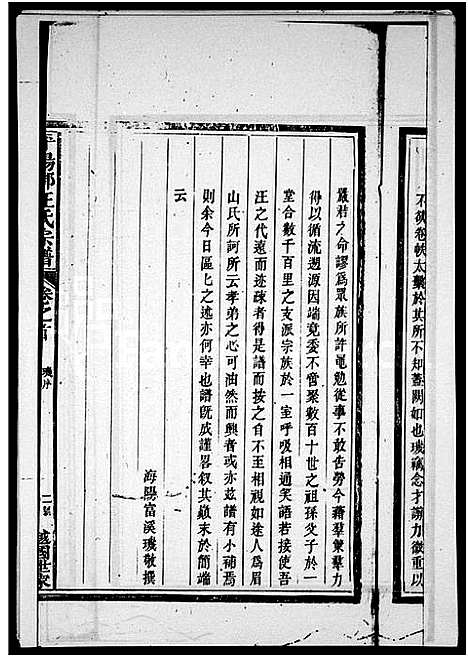 不復卷帙太繁於其所不知蓋闕如也璣竊念才謭力微重以
嚴君之命謬爲眾族所許黽勉從事不敢告勞今藉羣策羣力
得以循流遡源因端竟委不啻聚數百十世之祖孫父子於一
堂合數千百里之支派宗族於一室呼吸相通笑語若接使吾
汪之代遠而迹疎者得是譜而按之自不至相視如途人爲眉
山氏所訶所云孝弟之心可油然而興者或亦茲譜有小補焉
則余今日區區之述亦何幸也譜旣成謹畧叙其巔末於簡端
云
海陽富溪璣敬撰
平陽郡汪氏宗譜
卷之首
璣序
二
越國世家